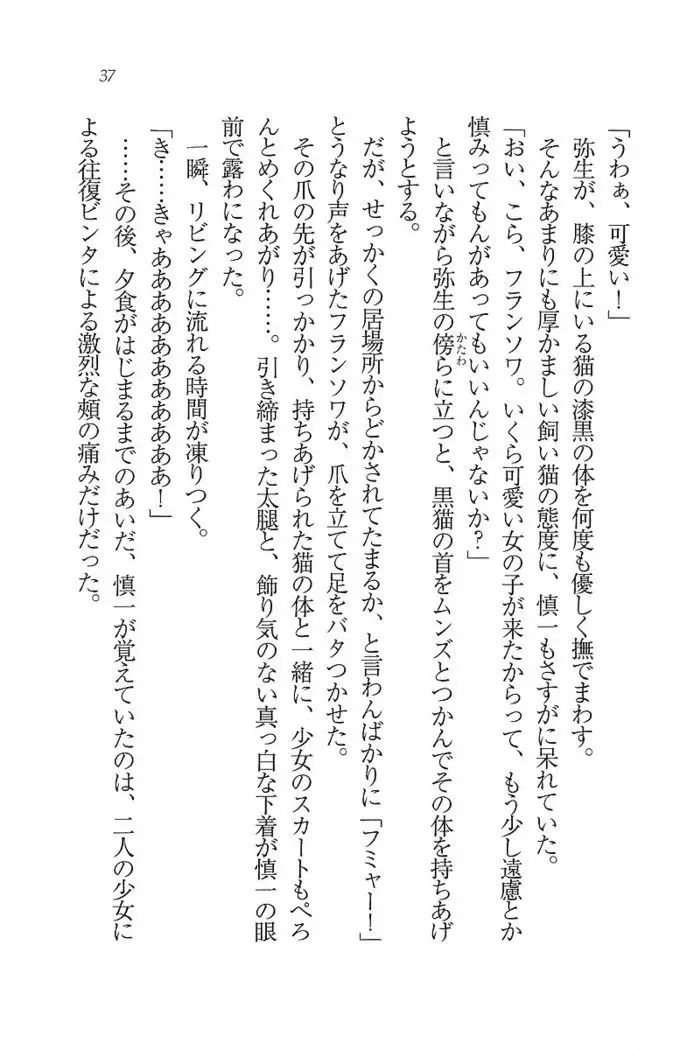 37
「うわぁ、可愛い！」
弥生が、膝の上にいる猫の漆黒の体を何度も優しく撫でまわす。
そんなあまりにも厚かましい飼い猫の態度に、慎一もさすがに呆れていた。
「おい、こら、フランソワ。いくら可愛い女の子が来たからって、もう少し遠慮とか
慎みってもんがあってもいいんじゃないか？」
と言いながら弥生の傍らに立つと、黒猫の首をムンズとつかんでその体を持ちあげ
かたわ
ようとする。
だが、せっかくの居場所からどかされてたまるか、と言わんばかりに「フミャー！」
とうなり声をあげたフランソワが、爪を立てて足をバタつかせた。
その爪の先が引っかかり、持ちあげられた猫の体と一緒に、少女のスカートもぺろ
んとめくれあがり……。引き締まった太腿と、飾り気のない真っ白な下着が慎一の眼
前で露わになった。
一瞬、リビングに流れる時間が凍りつく。
「き……きゃああああああああああ！」
……その後、夕食がはじまるまでのあいだ、慎一が覚えていたのは、二人の少女に
よる往復ビンタによる激烈な頬の痛みだけだった。